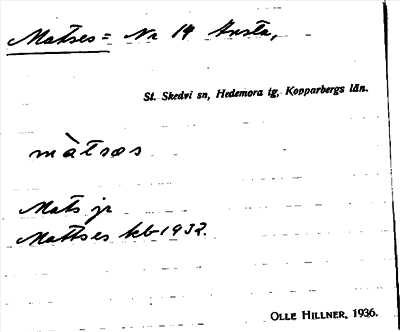 Matses = Nr 14 Arsta,
St. Skedvi sn, Hedemora tg, Kopparbergs län.
màtsəs
Mats jr
Mattses kb 1932.
OLLE HILLNER, 1936.